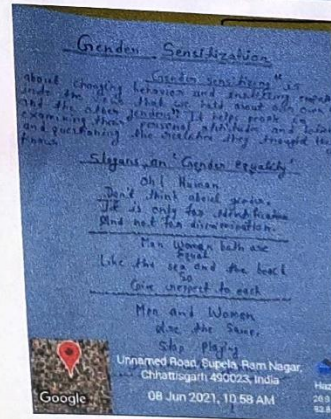 Gender Sensitization
"Gender sensitizing" is
about changing behavior and instilling empathy
into the views that we hold about our own
and the other genders." It helps people in
examining their personal attitudes and beliefs
and questioning the realities they thought they
known
Slogans on "Gender Equality"
Oh! Human
Don't think about gender.
It is only for identification
And not for discrimination.
Man Women both are
Equal
Like the sea and the beach
So
Give respect to each
Men and Women
are the Same,
Stop Playing
Google
Unnamed Road, Supela, Ram Nagar,
Chhattisgarh 490023, India
08 Jun 2021, 10:58 AM